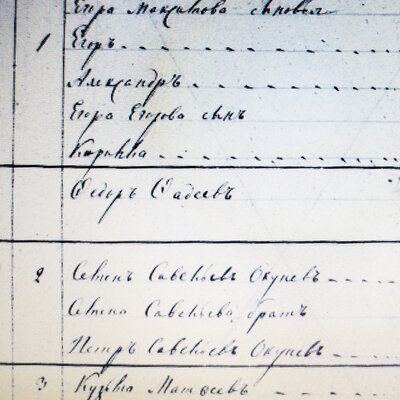 Егора Максимова сыновья
1 Егоръ
Александръ
Егора Егорова сынъ
Кирилла
Ѳедоръ Фадеевъ
2 Семенъ Савельевъ Окуневъ
Семена Савельева братъ
Петръ Савельевъ Окуневъ
3 Кузьма Матвеевъ